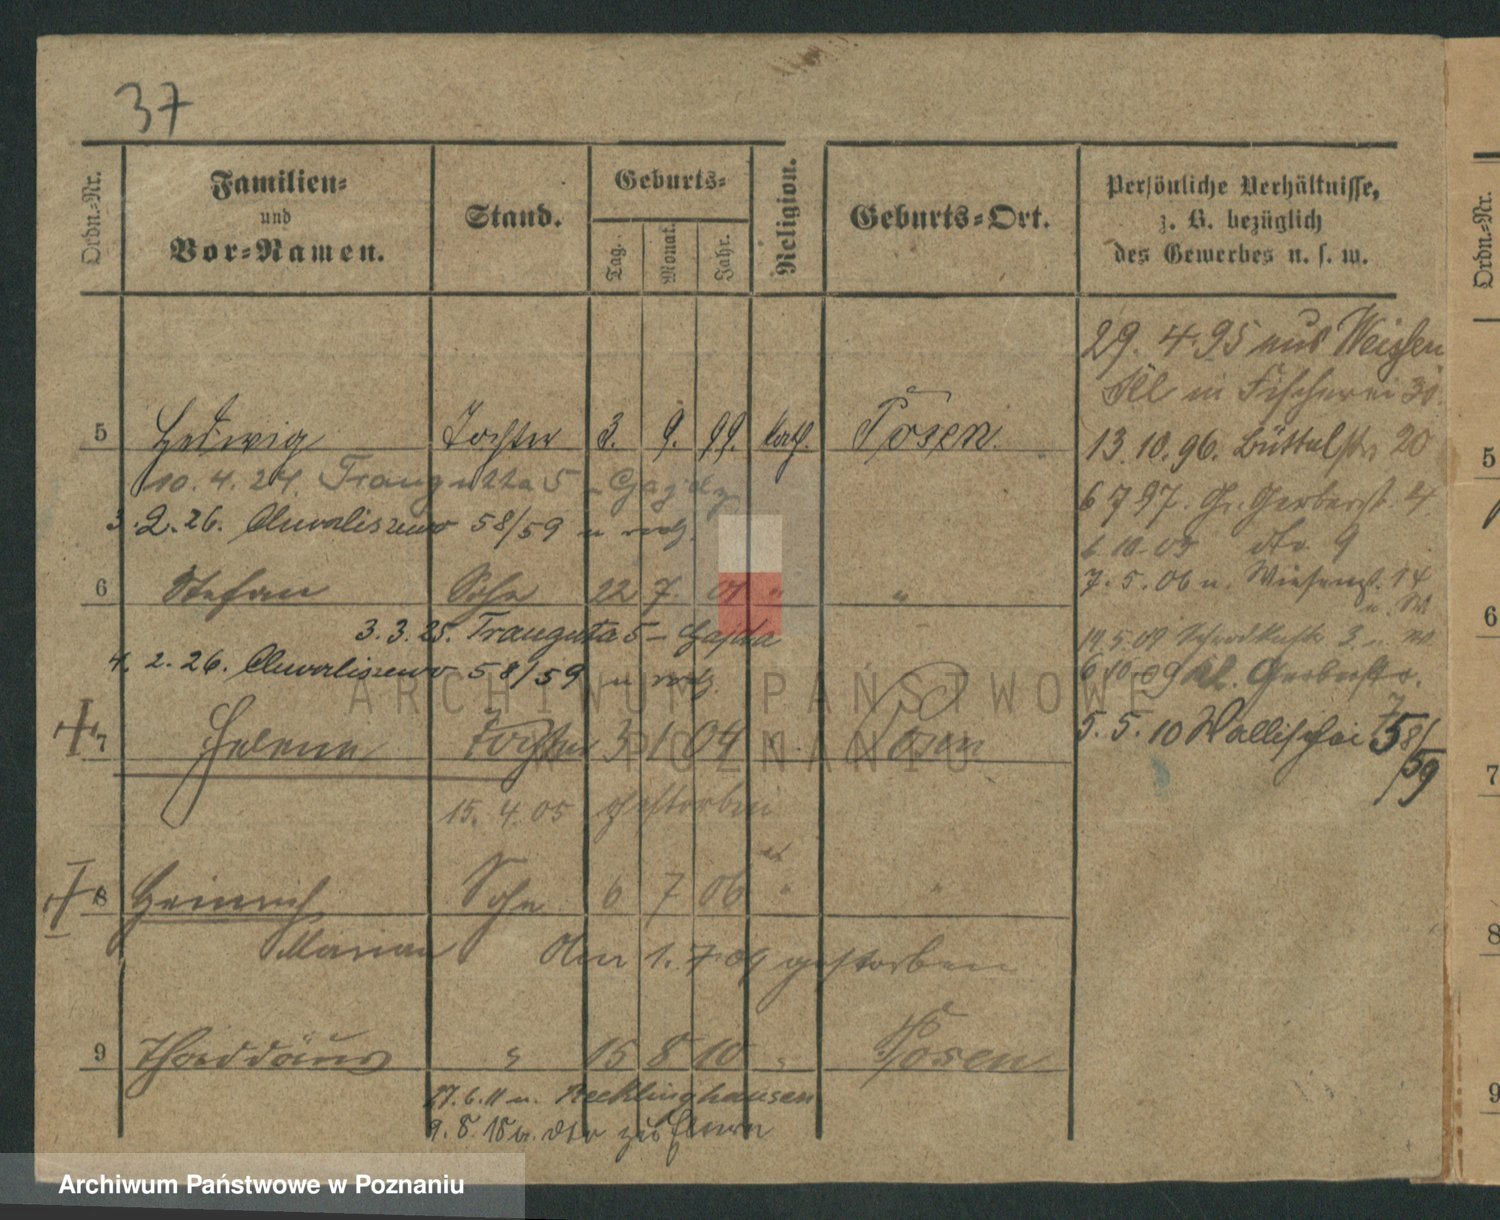 37
Ordn.-Nr.
Familien-
und
Vor-Namen.
Stand.
Geburts-
Tag.
Monat.
Jahr.
Religion.
Geburts-Ort.
Persönliche Verhältnisse,
z. B. bezüglich
des Gewerbes u. s. w.
Ordn.-Nr.
29. 4. 95 aus Weißen
in Fischerei 31
5 Hedwig Tochter 3. 9. 99. kath. Posen.
13. 10. 96. Büttelstr 20
10. 4. 24. Traugutta 5 - Gajdy
6 7 97. Gr. Gerberst. 4.
3. 2. 26. Chwaliszewo 58/59
6. 10. 03 dto 9
6 Stefan Sohn 22 7. 01 " "
7. 5. 06 u. Wiesenst. 14
3. 3. 25. Traugutta 5 - Gajda
4. 2. 26. Chwaliszewo 58/59
6 10 09 Kl. Gerberstr.
7
7 Helene Tochter 3 1 04 " Posen
5. 5. 10 Wallischei 58/
59
15. 4. 05 gestorben
8 Heinrich Sohn 6 7 06 " "
Marian Am 1. 7 09 gestorben
9 Thaddäus " 15 8 10 " Posen
27. 6. 11 u. Recklinghausen
9. 8. 18 v. dto
5
6
7
8
9
ARCHIWUM PAŃSTWOWE
W POZNANIU
Archiwum Państwowe w Poznaniu